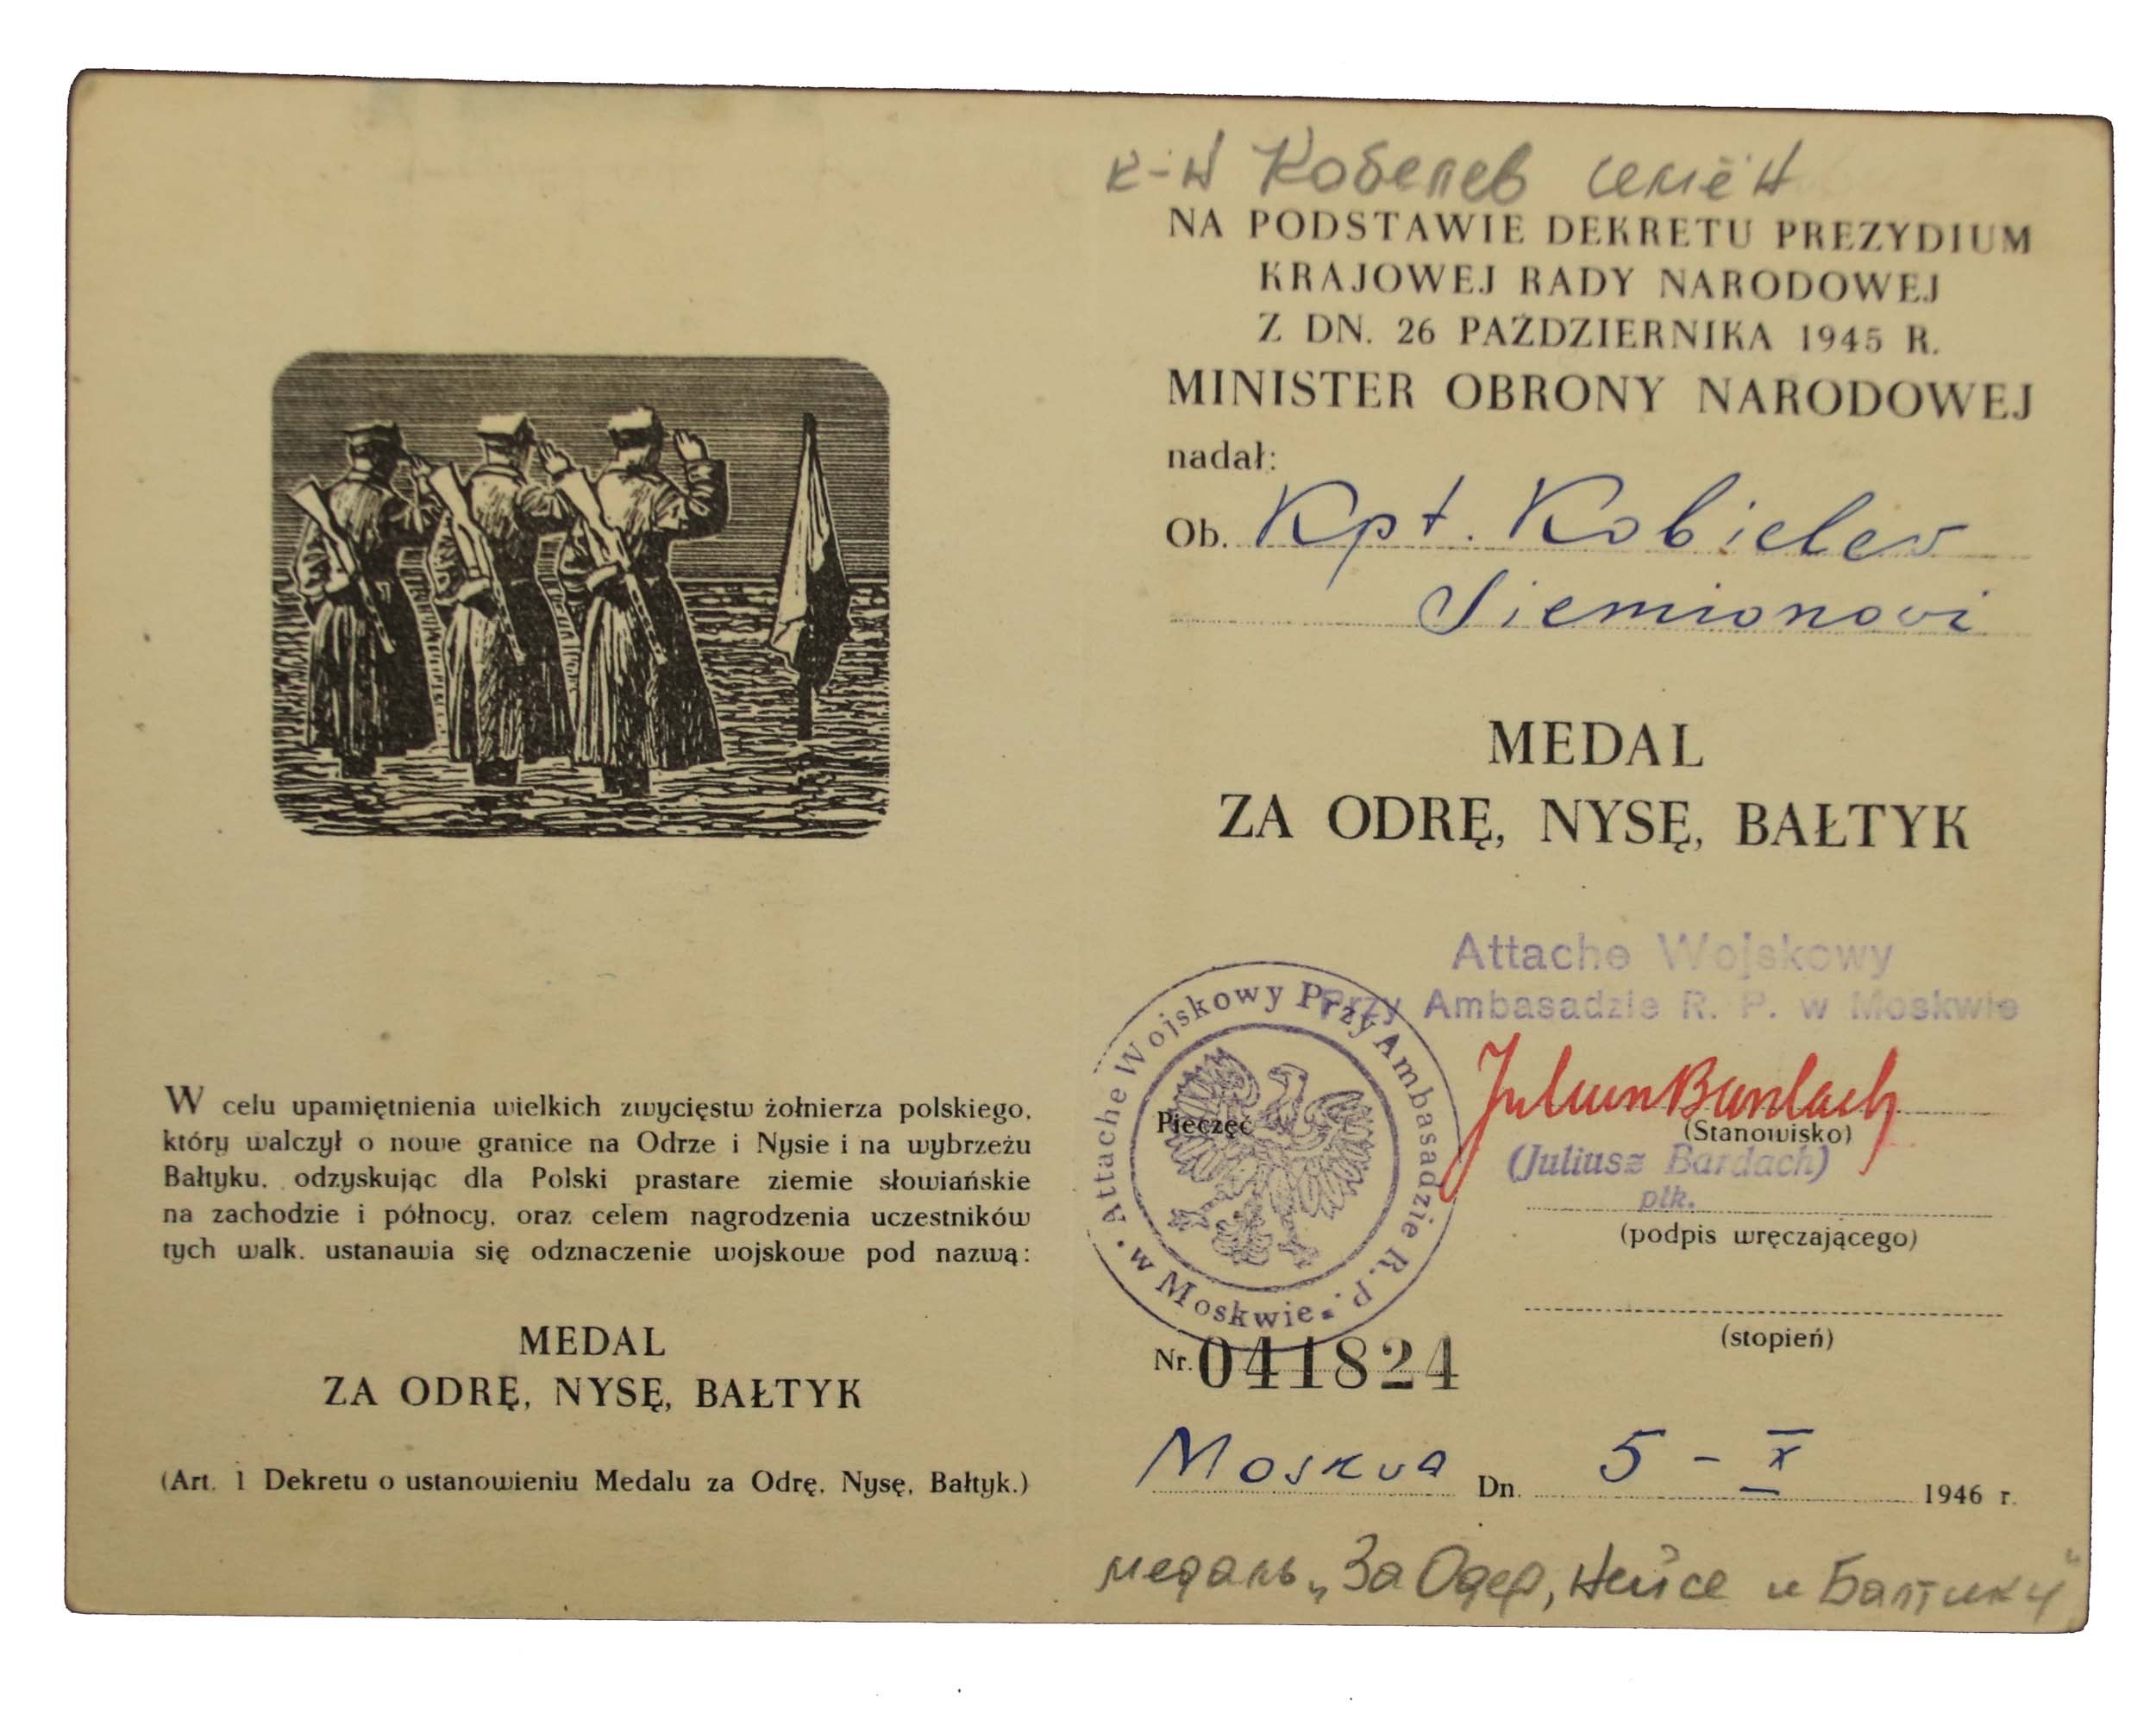 W celu upamiętnienia wielkich zwycięstw żołnierza polskiego,
który walczył o nowe granice na Odrze i Nysie i na wybrzeżu
Bałtyku, odzyskując dla Polski prastare ziemie słowiańskie
na zachodzie i północy, oraz celem nagrodzenia uczestników
tych walk, ustanawia się odznaczenie wojskowe pod nazwą:
MEDAL
ZA ODRĘ, NYSĘ, BAŁTYK
(Art. 1 Dekretu o ustanowieniu Medalu za Odrę, Nysę, Bałtyk.)
к-н Кобелев Семён
NA PODSTAWIE DEKRETU PREZYDIUM
KRAJOWEJ RADY NARODOWEJ
Z DN. 26 PAŹDZIERNIKA 1945 R.
MINISTER OBRONY NARODOWEJ
nadał:
Ob. Kpt. Kobielew
Siemionowi
MEDAL
ZA ODRĘ, NYSĘ, BAŁTYK
Attache Wojskowy
Przy Ambasadzie R. P. w Moskwie
Attache Wojskowy Przy Ambasadzie R. P.
w Moskwie
Pieczęć
Juliusz Bardach
(Stanowisko)
(Juliusz Bardach)
płk.
(podpis wręczającego)
(stopień)
Nr. 041824
Moskwa Dn. 5 - X 1946 r.
медаль „За Одер, Нейсе и Балтику"